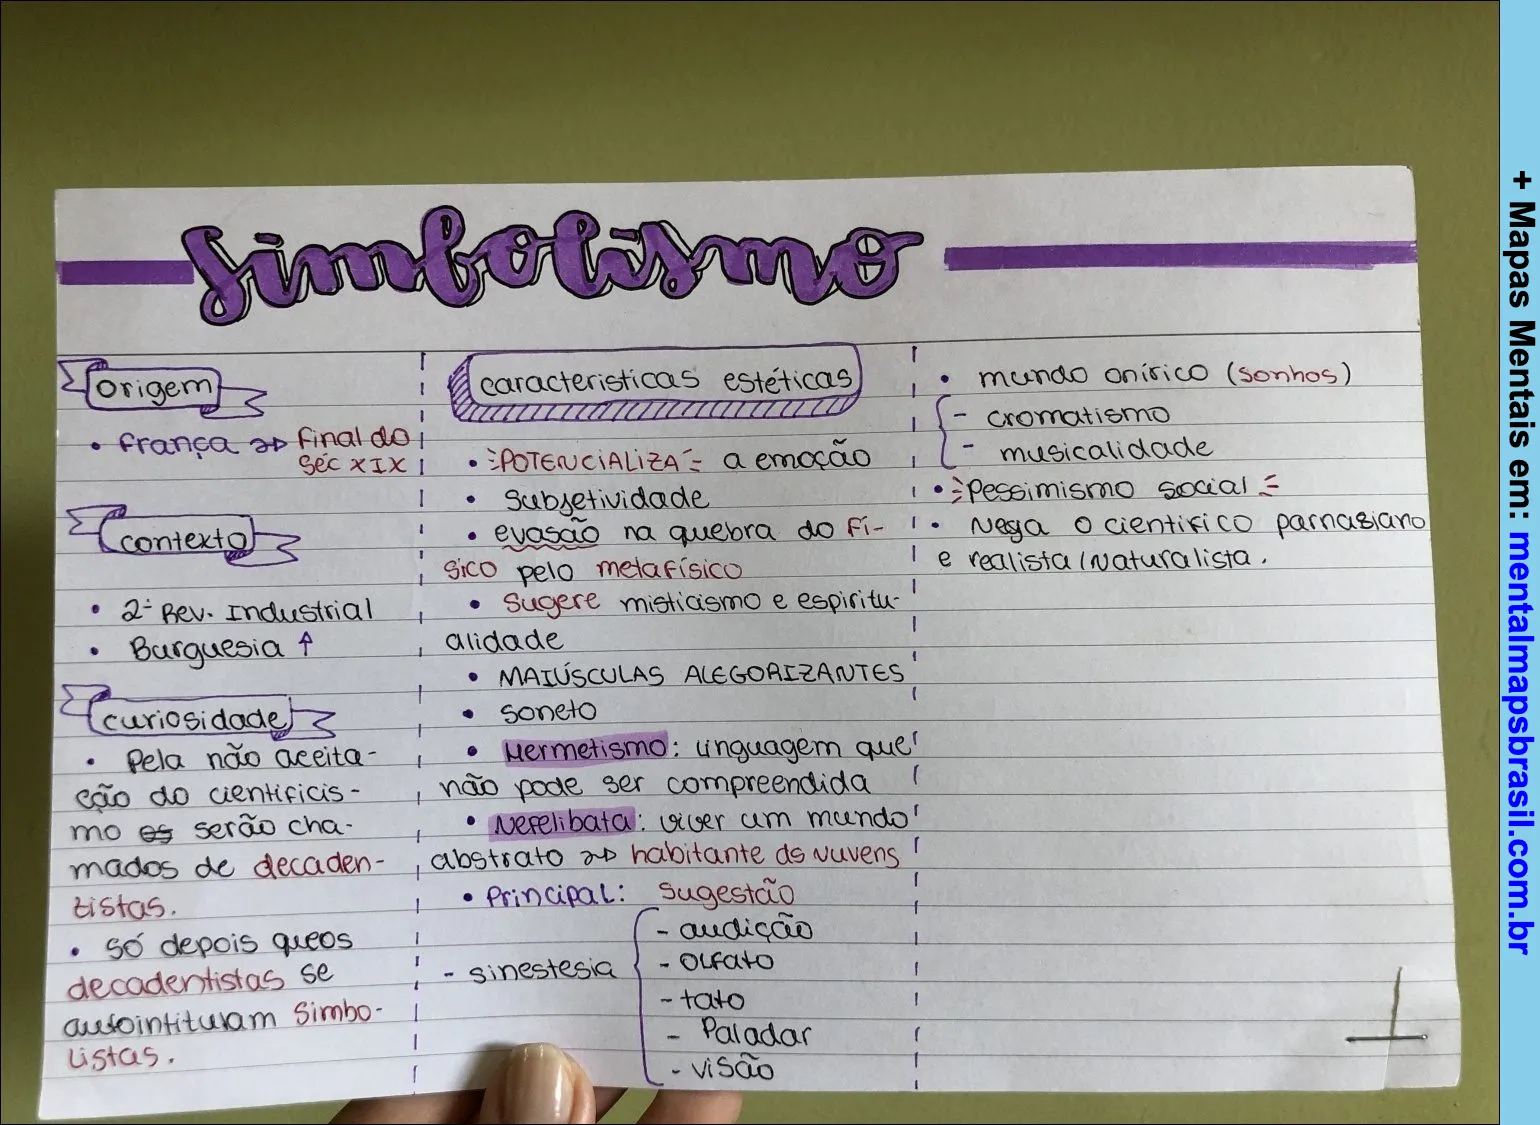 Simbolismo
origem
• França → final do
séc XIX
contexto
• 2ª Rev. Industrial
• Burguesia ↑
curiosidade
• Pela não aceita-
ção do cientificis-
mo os serão cha-
mados de decaden-
tistas.
• só depois que os
decadentistas se
autointitulam simbo-
listas.
caracteristicas estéticas
• POTENCIALIZA a emoção
• subjetividade
• evasão na quebra do fí-
sico pelo metafísico
• sugere misticismo e espiritu-
alidade
• MAIÚSCULAS ALEGORIZANTES
• soneto
• Hermetismo: linguagem que
não pode ser compreendida
• Nefelibata: viver um mundo
abstrato → habitante ds nuvens
• Principal: sugestão
- sinestesia
- audição
- olfato
- tato
- Paladar
- visão
• mundo onírico (sonhos)
- cromatismo
- musicalidade
• Pessimismo social
• Nega o cientifico parnasiano
e realista/Naturalista.
+ Mapas Mentais em: mentalmapsbrasil.com.br